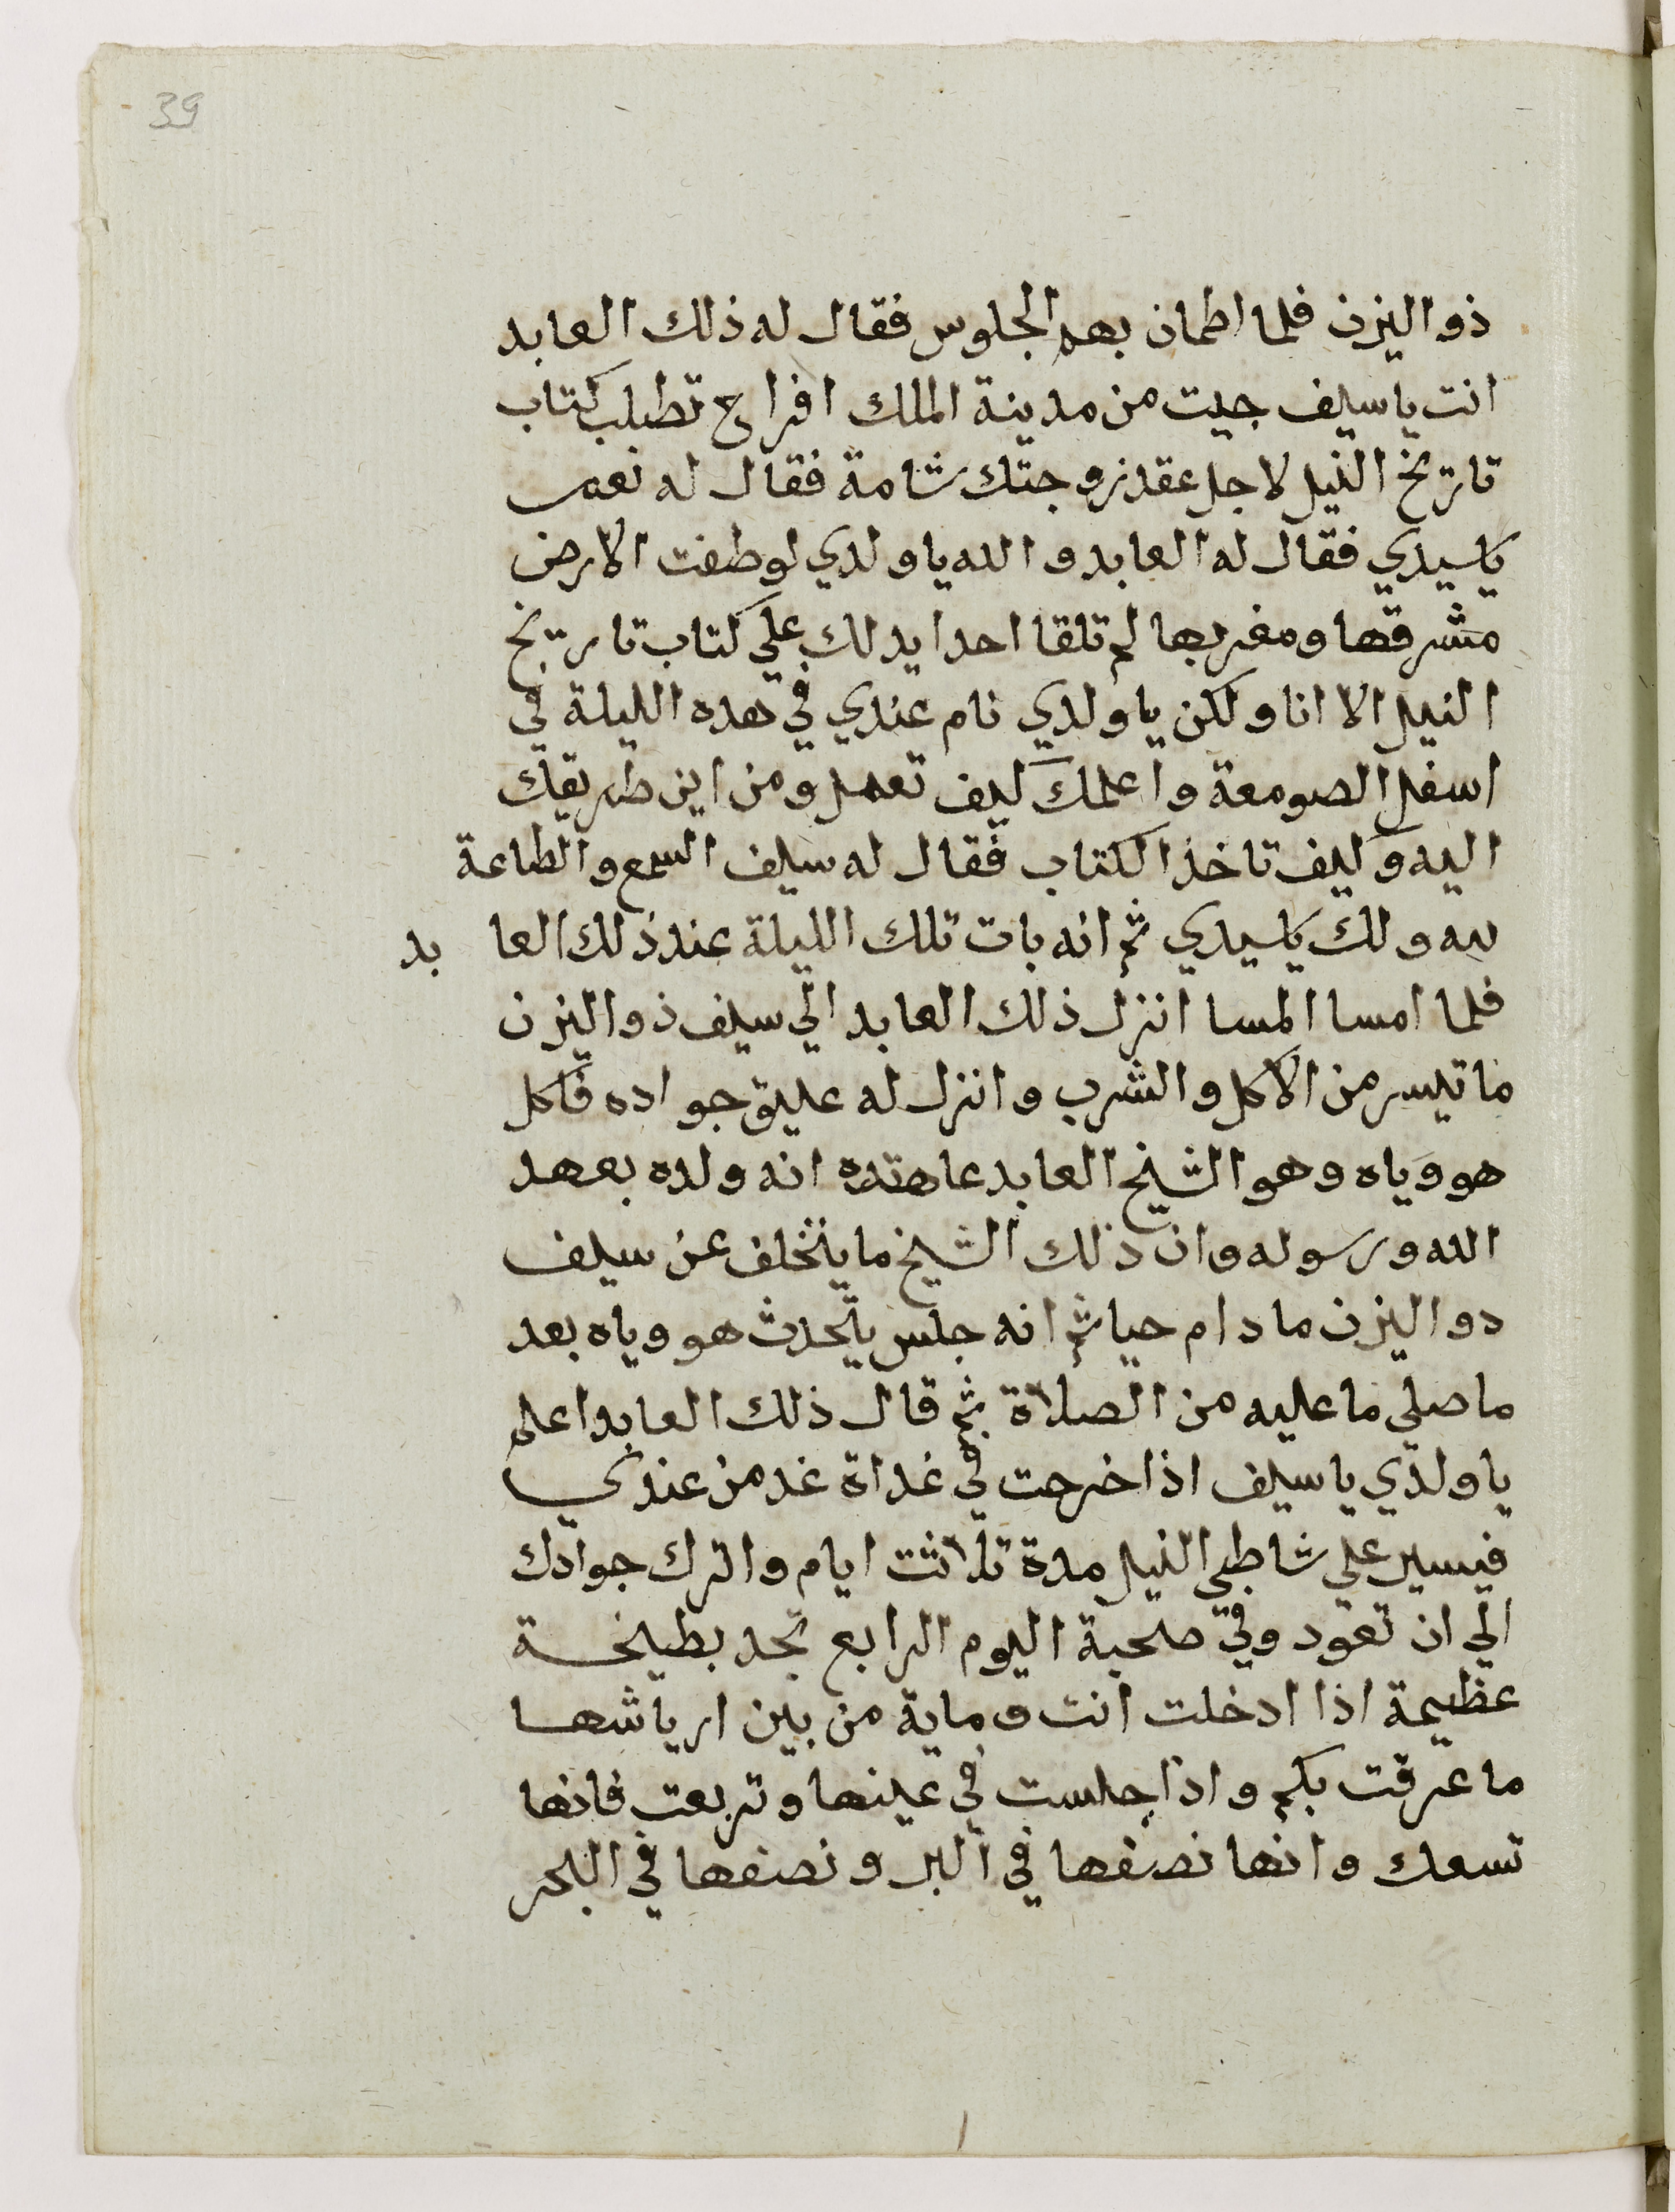 39
ذو اليزن فلما اطمان بهم الجلوس فقال له ذلك العابد
انت يا سيف جيت من مدينة الملك افراح تطلب كتاب
تاريخ النيل لاجل عقد زوجتك شامة فقال له نعم
يا سيدي فقال له العابد والله يا ولدي لو طفت الارض
مشرقها ومغربها لم تلقا احدا يدلك علي كتاب تاريخ
النيل الا انا ولكن يا ولدي نام عندي في هده الليلة في
اسفل الصومعة واعلمك كيف تعمل ومن اين طريقك
اليه وكيف تاخذ الكتاب فقال له سيف السمع والطاعة
لله ولك يا سيدي ثم انه بات تلك الليلة عند ذلك العابد
فلما امسا المسا انزل ذلك العابد الي سيف ذو اليزن
ما تيسر من الاكل والشرب وانزل له عليق جواده فاكل
هو وياه وهو الشيخ العابد عاهده انه ولده بعهد
الله ورسوله وان ذلك الشيخ ما يتخلف عن سيف
دو اليزن ما دام حيا ثم انه جلس يتحدث هو وياه بعد
ما صلي ما عليه من الصلاة ثم قال ذلك العابد اعلم
يا ولدي يا سيف اذا خرجت في غداة غد من عندي
فيسير علي شاطي النيل مدة تلاثت ايام واترك جوادك
الي ان تعود وفي صحبة اليوم الرابع تجد بطيخة
عظيمة اذا ادخلت انت وماية من بين ارياشها
ما عرقت بكم واذا جلست في عينها وتربعت فانها
تسعك وانها نصفها في البر ونصفها في البحر